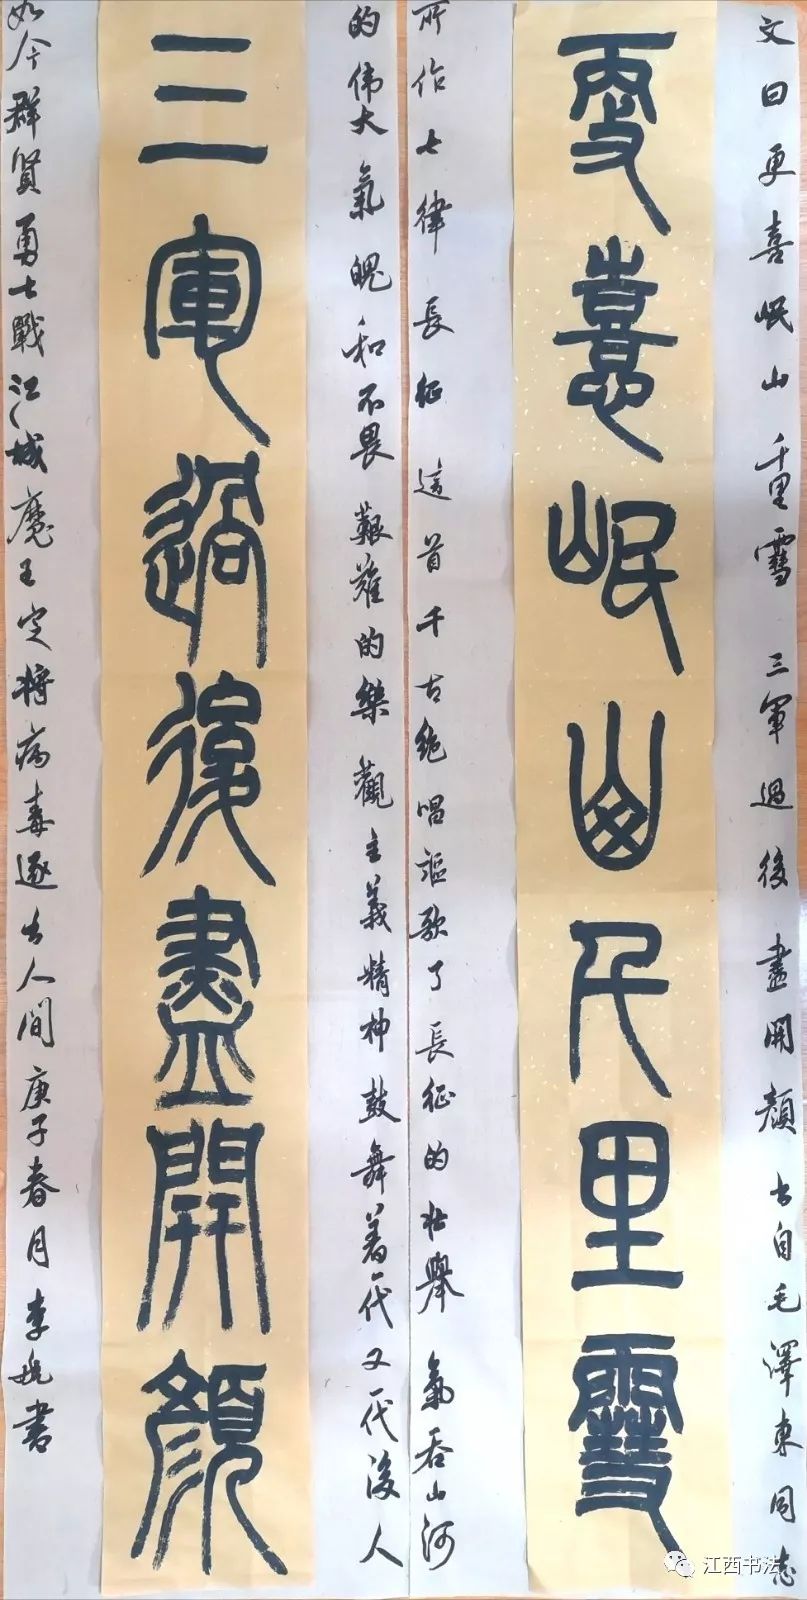 文曰更喜岷山千里雪三軍過後盡開顏出自毛澤東同志
更憙岷山千里雪
所作七律長征這首千古絕唱謳歌了長征的壯舉氣吞山河
的伟大氣魄和不畏艱難的樂觀主義精神鼓舞着一代又一代後人
三軍過後盡開顏
如今群賢勇士戰江城魔王定將病毒逐出人間庚子春月李書
江西书法